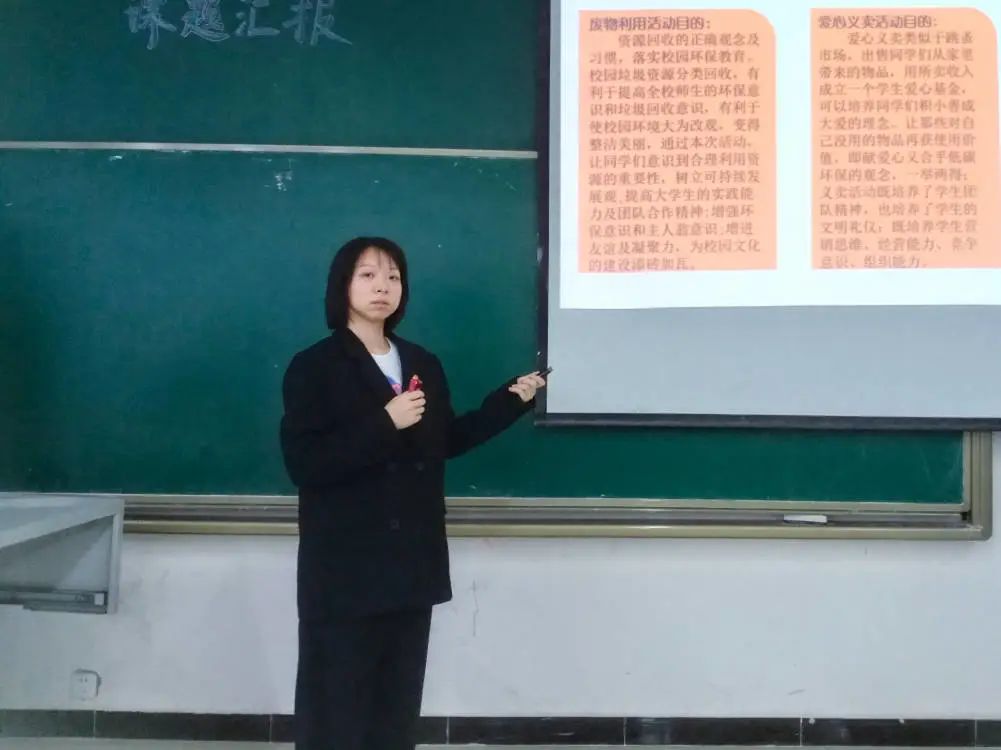 课题汇报
废物利用活动目的：
资源回收的正确观念及
习惯，落实校园环保教育。
校园垃圾资源分类回收，有
利于提高全校师生的环保意
识和垃圾回收意识，有利于
使校园环境大为改观，变得
整洁美丽，通过本次活动，
让同学们意识到合理利用资
源的重要性，树立可持续发
展观，提高大学生的实践能
力及团队合作精神;增强环
保意识和主人翁意识,增进
友谊及凝聚力，为校园文化
的建设添砖加瓦。
爱心义卖活动目的：
爱心义卖类似于跳蚤
市场，出售同学们从家里
带来的物品，用所卖收入
成立一个学生爱心基金，
可以培养同学们积小善成
大爱的理念。让那些对自
己没用的物品再获使用价
值，即献爱心又合乎低碳
环保的观念，一举两得；
义卖活动既培养了学生团
队精神，也培养了学生的
文明礼仪；既培养学生营
销思维、经营能力、竞争
意识、组织能力。